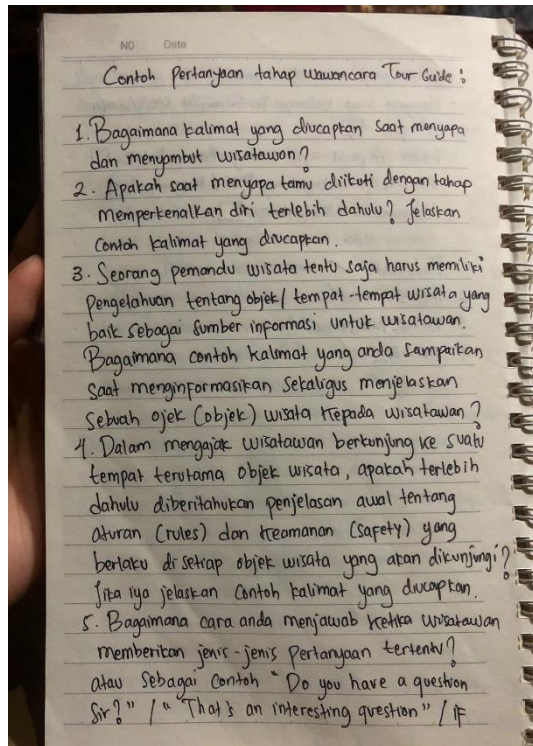 NO Date
Contoh Pertanyaan tahap wawancara Tour Guide :
1. Bagaimana kalimat yang diucapkan saat menyapa
dan menyambut wisatawan?
2. Apakah saat menyapa tamu diikuti dengan tahap
memperkenalkan diri terlebih dahulu? Jelaskan
Contoh kalimat yang diucapkan.
3. Seorang pemandu wisata tentu saja harus memiliki
pengetahuan tentang objek/ tempat-tempat wisata yang
baik sebagai sumber informasi untuk wisatawan.
Bagaimana contoh kalimat yang anda sampaikan
saat menginformasikan sekaligus menjelaskan
sebuah ojek (objek) wisata kepada wisatawan?
4. Dalam mengajak wisatawan berkunjung ke suatu
tempat terutama objek wisata, apakah terlebih
dahulu diberitahukan penjelasan awal tentang
aturan (rules) dan keamanan (safety) yang
berlaku di setiap objek wisata yang akan dikunjungi?
Jika iya jelaskan contoh kalimat yang diucapkan.
5. Bagaimana cara anda menjawab ketika wisatawan
memberikan jenis-jenis pertanyaan tertentu?
atau sebagai contoh "Do you have a question
Sir?" / "That's an interesting question" / IF